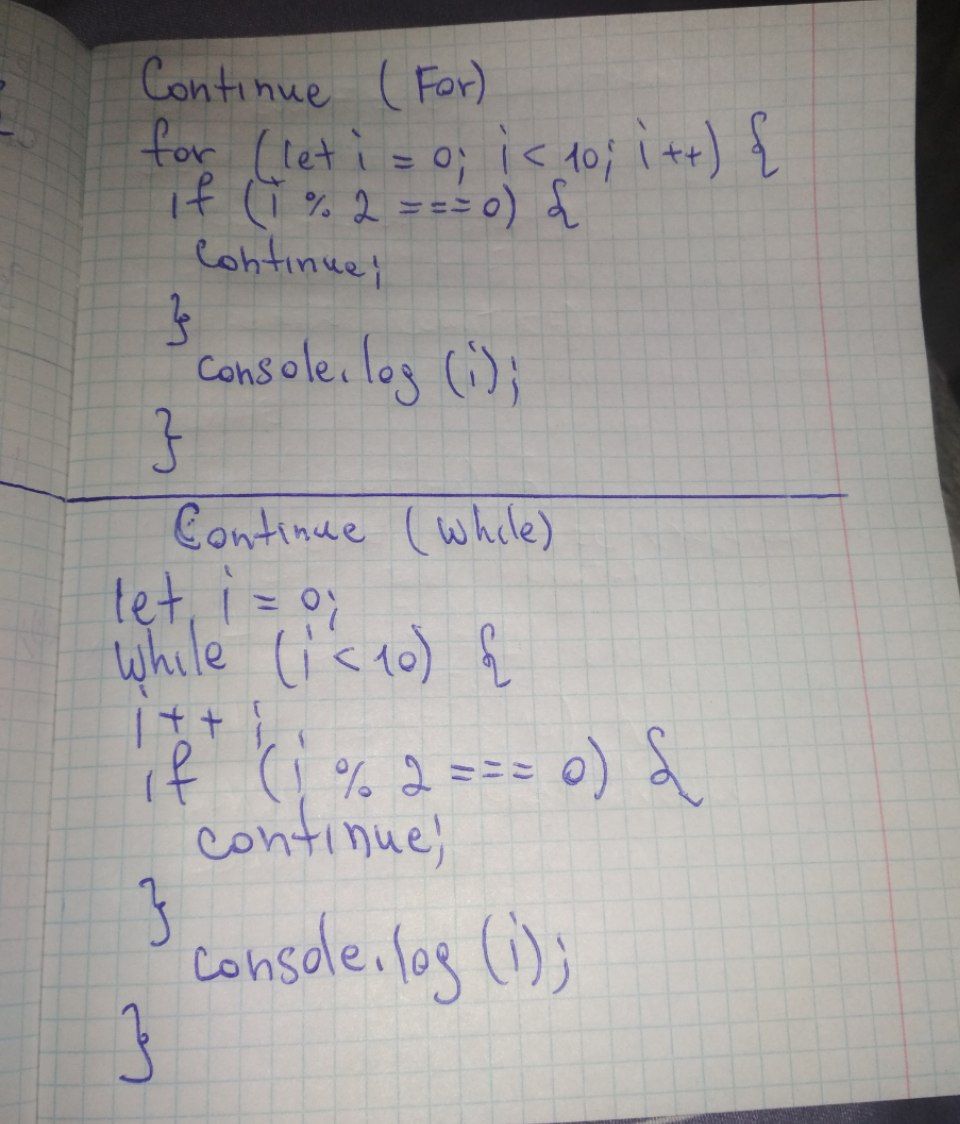 Continue (For)
for (let i = 0; i < 10; i ++) {
if (i % 2 === 0) {
continue;
}
console.log (i);
}
Continue (While)
let i = 0;
while (i < 10) {
i + + ;
if (i % 2 === 0) {
continue;
}
console.log (i);
}